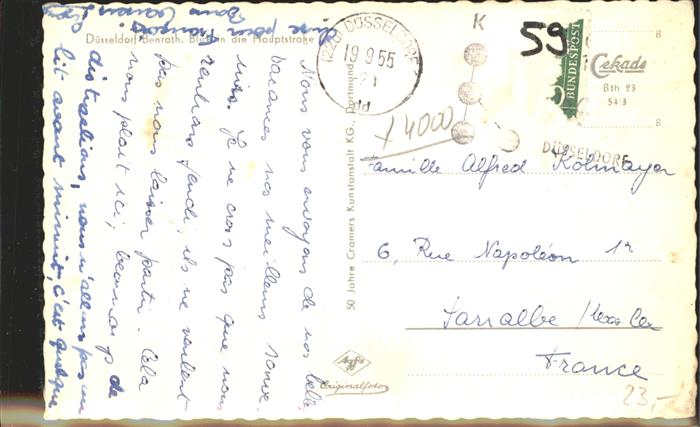 Düsseldorf-Benrath, Blick in die Hauptstraße
Nous vous envoyons de nos belles
vacances nos meilleurs souve-
nirs. Je ne crois pas que nous
rentrions jeudi, ils ne veulent
pas nous laisser partir. Cela
nous plaît ici, beaucoup de
distractions, nous n'allons pas au
lit avant minuit, c'est quelque
chose pour François
50 Jahre Cramers Kunstanstalt KG., Dortmund
(22a) DÜSSELDORF
19.9.55
K
59
BUNDESPOST
Cekade
Bth 23
54/3
B
B
14000
DÜSSELDORF
Famille Alfred Kolmayer
6, Rue Napoléon 1er
Sarralbe
France
Agfa
Originalfoto
23,-